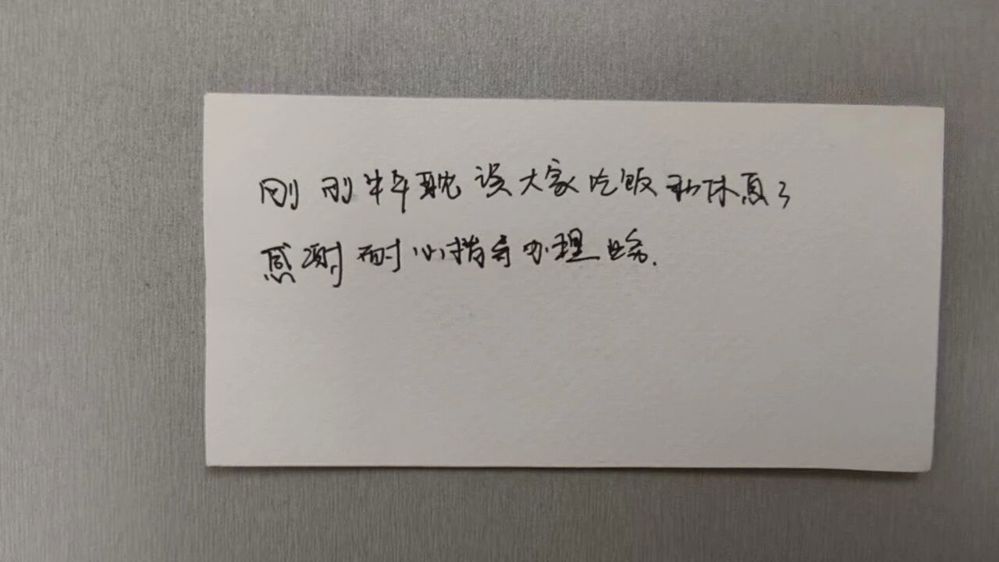 刚刚耽误大家吃饭和休息了
感谢耐心指导办理业务.